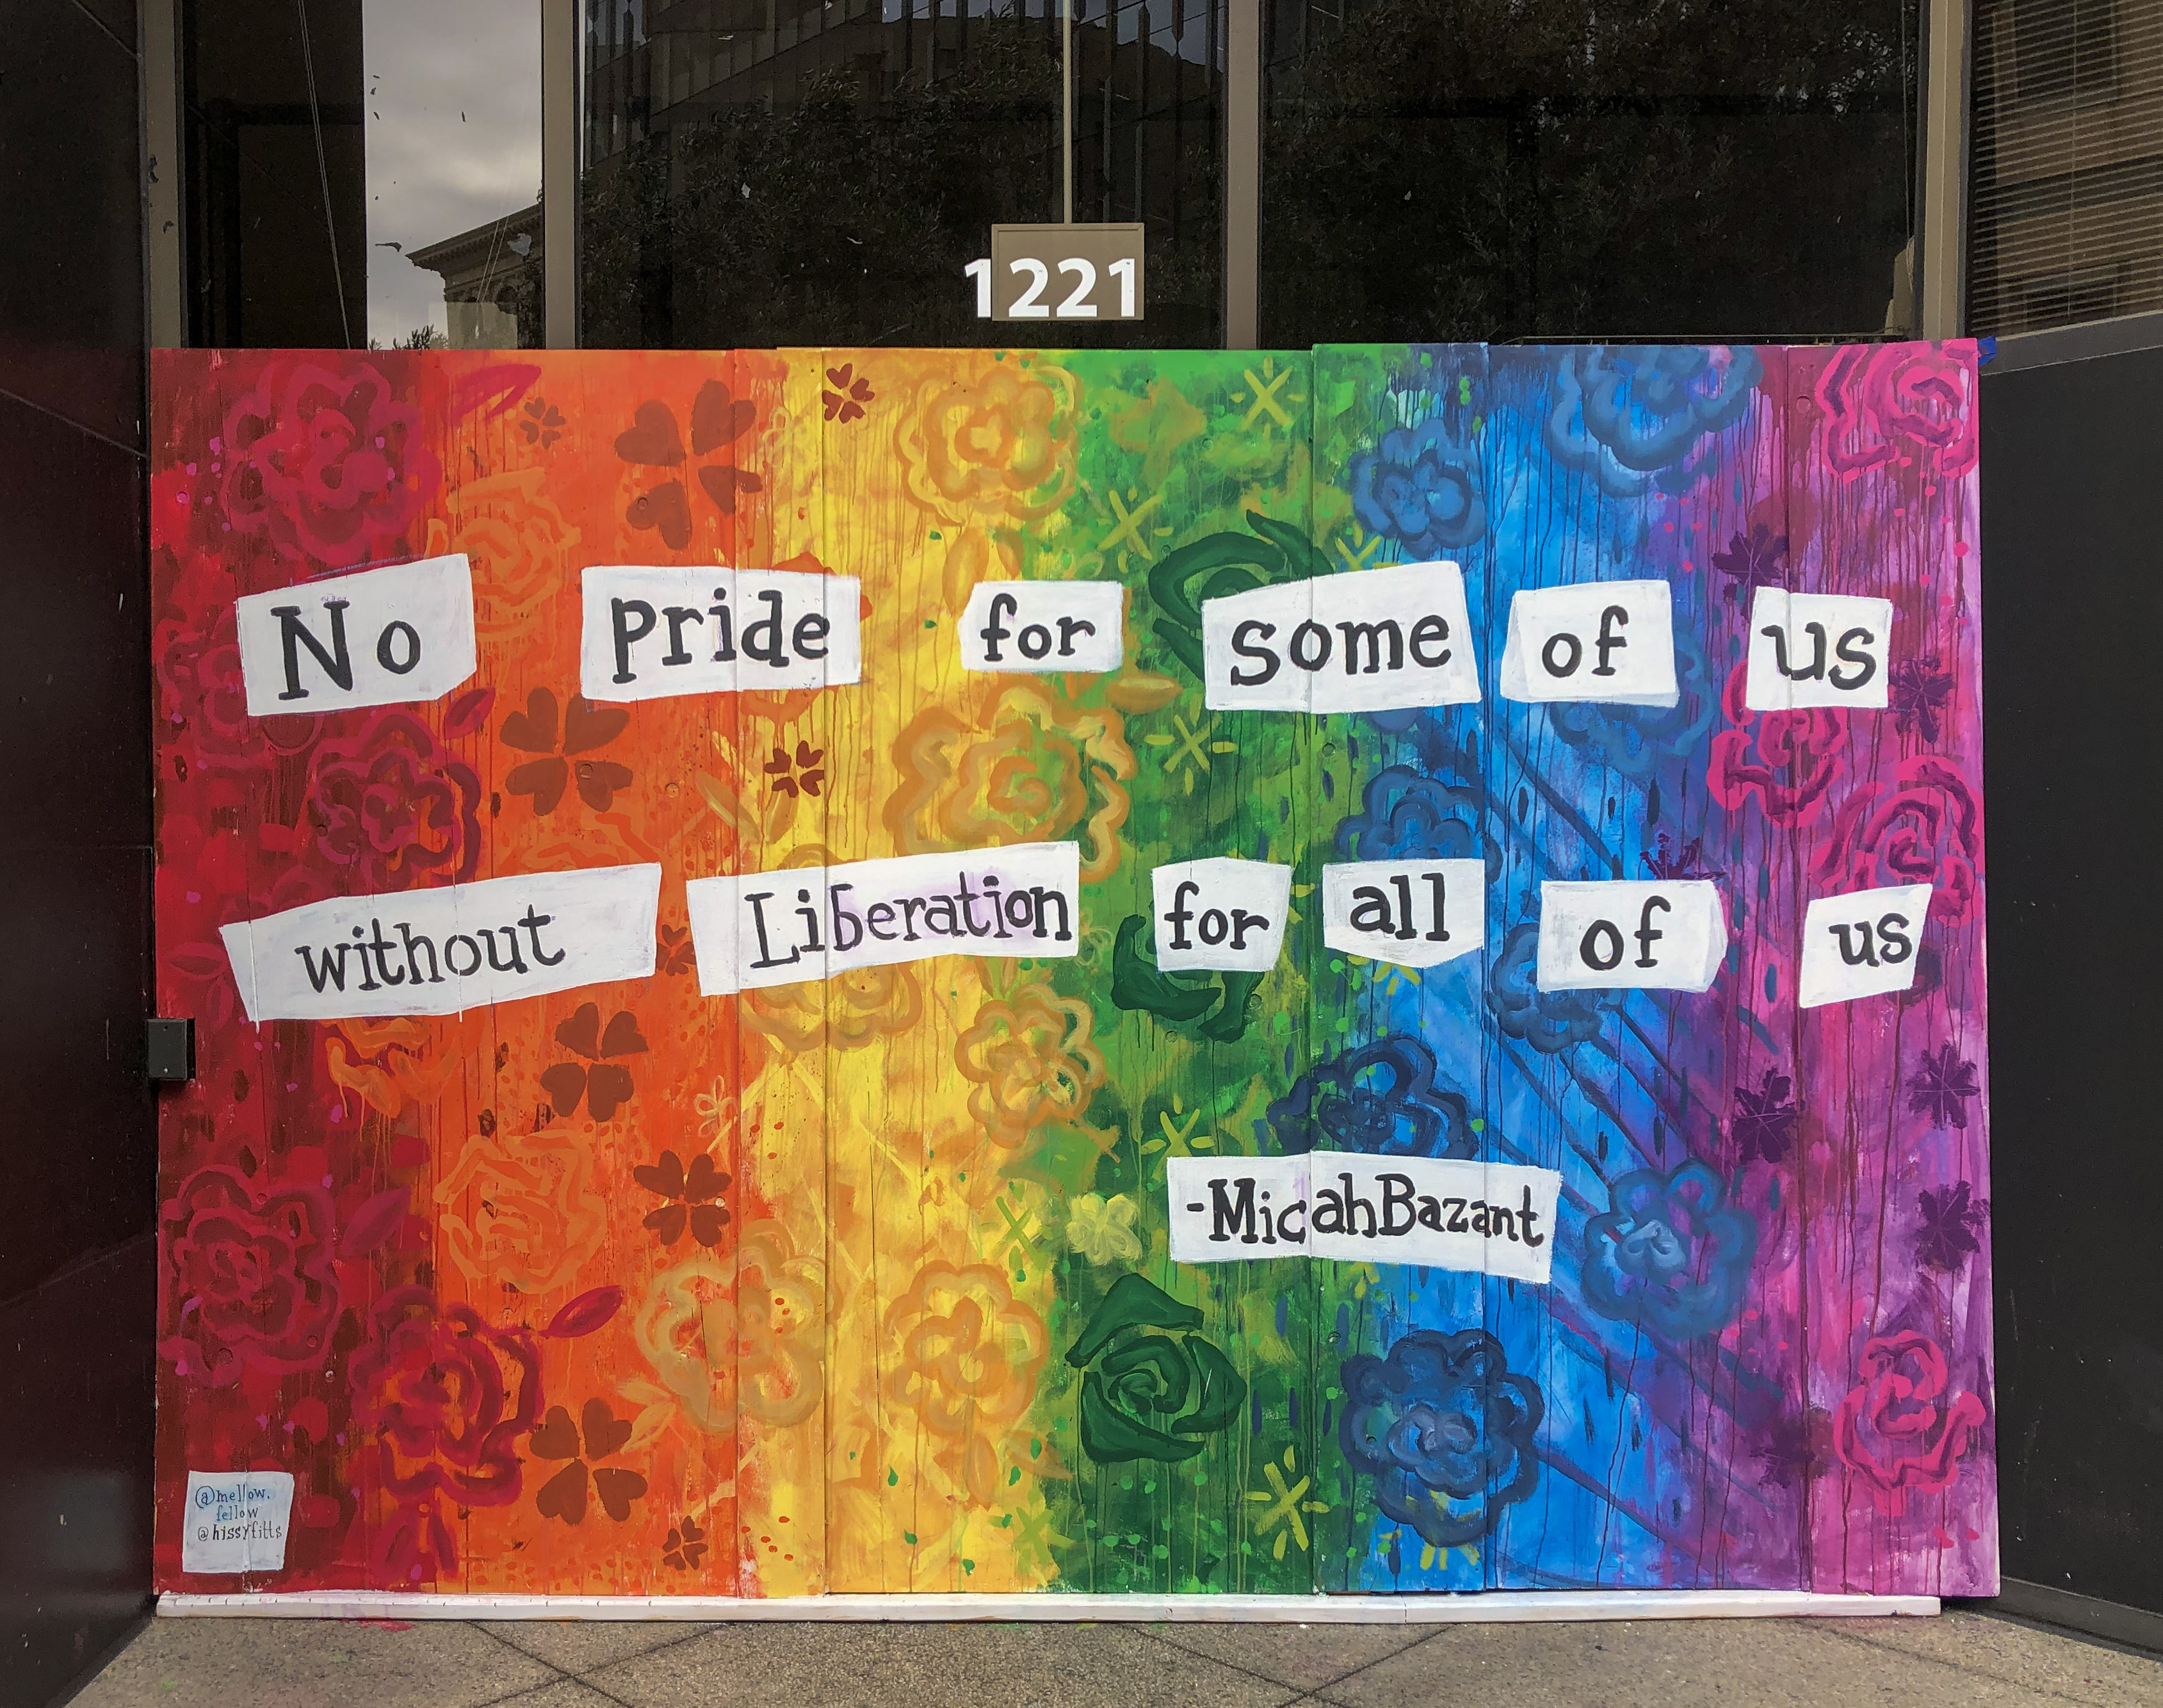 1221
No pride for some of us
without Liberation for all of us
-Micah Bazant
@mellow.
fellow
@hissyfitts